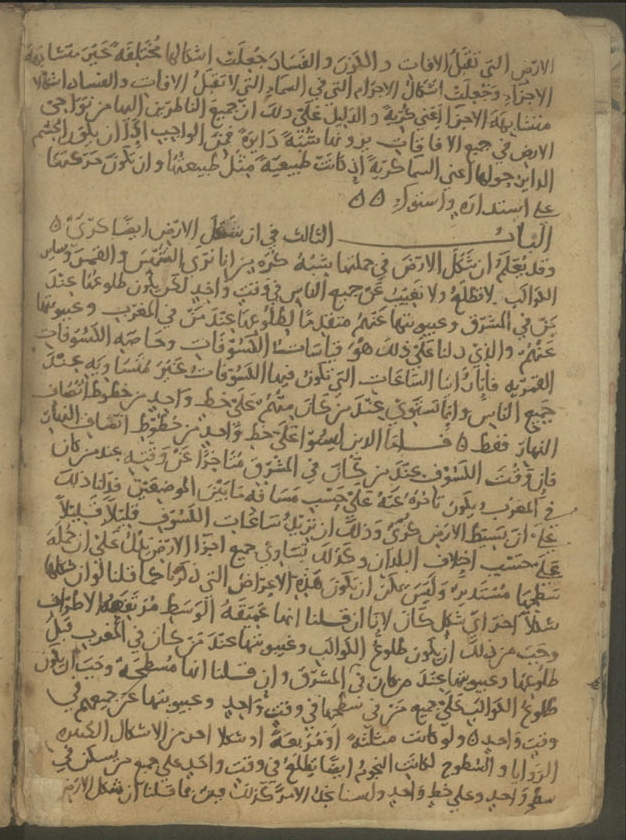 الارض التى تقبل الافات والكون والفساد جعلت اشكالها مختلفة غير متشابهة
الاجزاء وجعلت اشكال الاجرام التى فى السماء التى لا تقبل الافات والفساد اشكالا
متشابهة الاجزا اعنى كرية والدليل على ذلك ان جميع الناظرين اليها من نواحى
الارض فى جميع الافاقات يرونها شبه دايرة فمن الواجب اذا ان يكون الجسم
الداير حولها اعنى السما كرية اذ كانت طبيعية مثل طبيعتها وان تكون حركتها
على استداره واستواء
الباب الثالث فى ان شكل الارض ايضا كرى
وقد يعلم ان شكل الارض فى جملتها شبه كره من انا نرى الشمس والقمر وساير
الكواكب لا تطلع ولا تغيب عن جميع الناس فى وقت واحد لكن يكون طلوعها عند
من فى المشرق وغيبوبتها عنهم متقدما لطلوعها عند من فى المغرب وغيبوبتها
عنهم والذى دلنا على ذلك هو قياسات الكسوفات وخاصه الكسوفات
القمريه فانا وجدنا الساعات التى تكون فيها الكسوفات غير متساويه عند
جميع الناس وانما تستوى عند من كان منهم على خط واحد من خطوط انصاف
النهار فقط فاما الذين ليسوا على خط واحد من خطوط انصاف النهار
فان وقت الكسوف عند من كان فى المشرق متاخرا عن وقته عند من كان
فى المغرب ويكون تاخره عنه على حسب مسافه ما بين الموضعين فدلنا ذلك
على ان بسيط الارض كرى وذلك ان تزيد ساعات الكسوف قليلا قليلا
على حسب اختلاف البلدان وكذلك تساوى جميع اجزا الارض يدل على ان جملة
سطحها مستديره وليس يمكن ان تكون هذه الاعراض التى ذكرنا كما قلنا لو ان شكلها
شكلا اخر اى شكل كان لانا ان قلنا انها عميقة الوسط مرتفعة الاطراف
وجب من ذلك ان يكون طلوع الكواكب وغيبوبتها عند من كان فى المغرب قبل
طلوعها وغيبوبتها عند من كان فى المشرق وان قلنا انها مسطحة وجب ان يكون
طلوع الكواكب على جميع من فى سطحها فى وقت واحد وغيبوبتها عن جميعهم فى
وقت واحد ولو كانت مثلثة او مربعة او شكلا اخر من الاشكال الكثيره
الزوايا والسطوح لكانت النجوم ايضا تطلع فى وقت واحد على جميع من يسكن فى
سطح واحد وعلى خط واحد ولسنا نجد الامر كذلك فبين مما قلنا ان شكل الارض